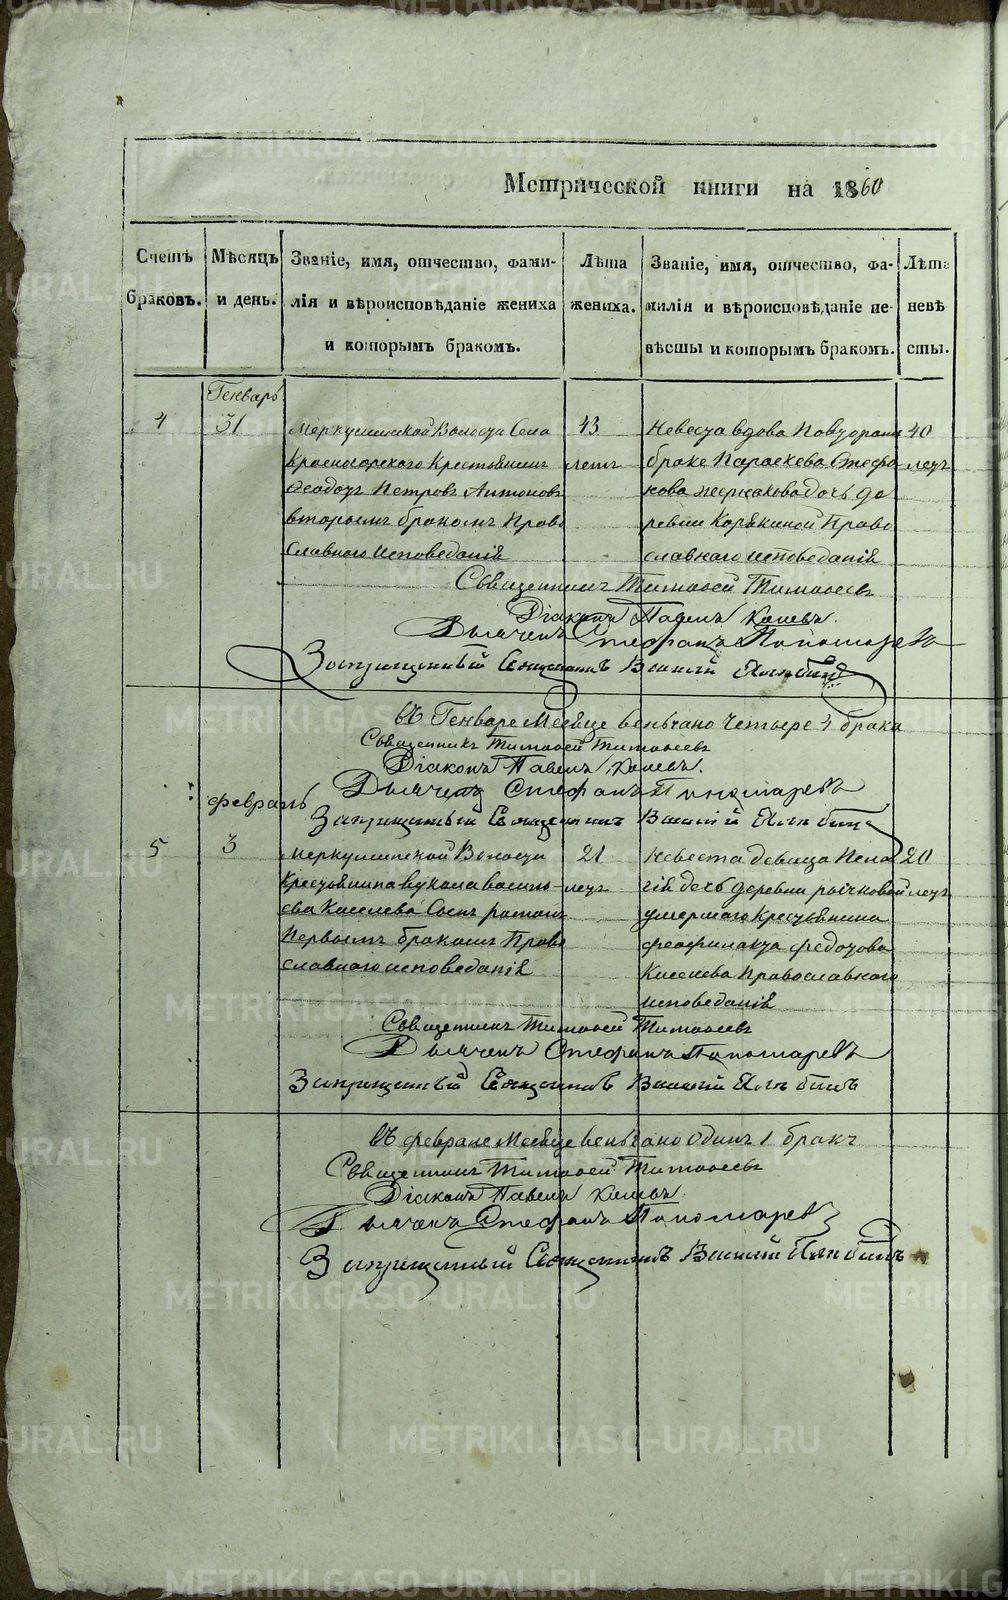 Метрической книги на 1860
Счетъ браковъ.
Мѣсяцъ и день.
Званіе, имя, отчество, фами-
лія и вѣроисповѣданіе жениха
и которымъ бракомъ.
Лѣта жениха.
Званіе, имя, отчество, фа-
милія и вѣроисповѣданіе не-
вѣсты и которымъ бракомъ.
Лѣта невѣ
сты.
Генварь
4
31
Меркушинской Волости Села
Красногорского Крестьянинъ
Ѳеодотъ Петровъ Антоновъ
вторымъ бракомъ Право
славного исповеданія
43
летъ
Невеста вдова
браке Параскева Стефа
нова дочь де
ревни Корякиной Право
славнаго исповеданія
40
летъ
Священникъ Тимоѳей Тимоѳеевъ
Діаконъ Павелъ
Дьячекъ Стефанъ Пономаревъ
Запрещенный Священникъ Василій
Въ Генваре Месяце венчано Четыре 4 брака
Священникъ Тимоѳей Тимоѳеевъ
Діаконъ Павелъ
Дьячекъ Стефанъ Пономаревъ
Запрещенный Священникъ Василій
Февраль
5
3
Меркушинской Волости
Крестьянина Вукола василь-
ева Киселева Сынъ романъ
Первымъ бракомъ Право
славнаго исповеданія
21
летъ
Невеста девица Пела
гія дочь деревни
умершаго Крестьянина
феофилакта федотова
Киселева Православнаго
исповеданія
20
летъ
Священникъ Тимоѳей Тимоѳеевъ
Дьячекъ Стефанъ Пономаревъ
Запрещенный Священникъ Василій
Въ феврале Месяце венчано Одинъ 1 бракъ
Священникъ Тимоѳей Тимоѳеевъ
Діаконъ Павелъ
Дьячекъ Стефанъ Пономаревъ
Запрещенный Священникъ Василій
METRIKI.GASO-URAL.RU